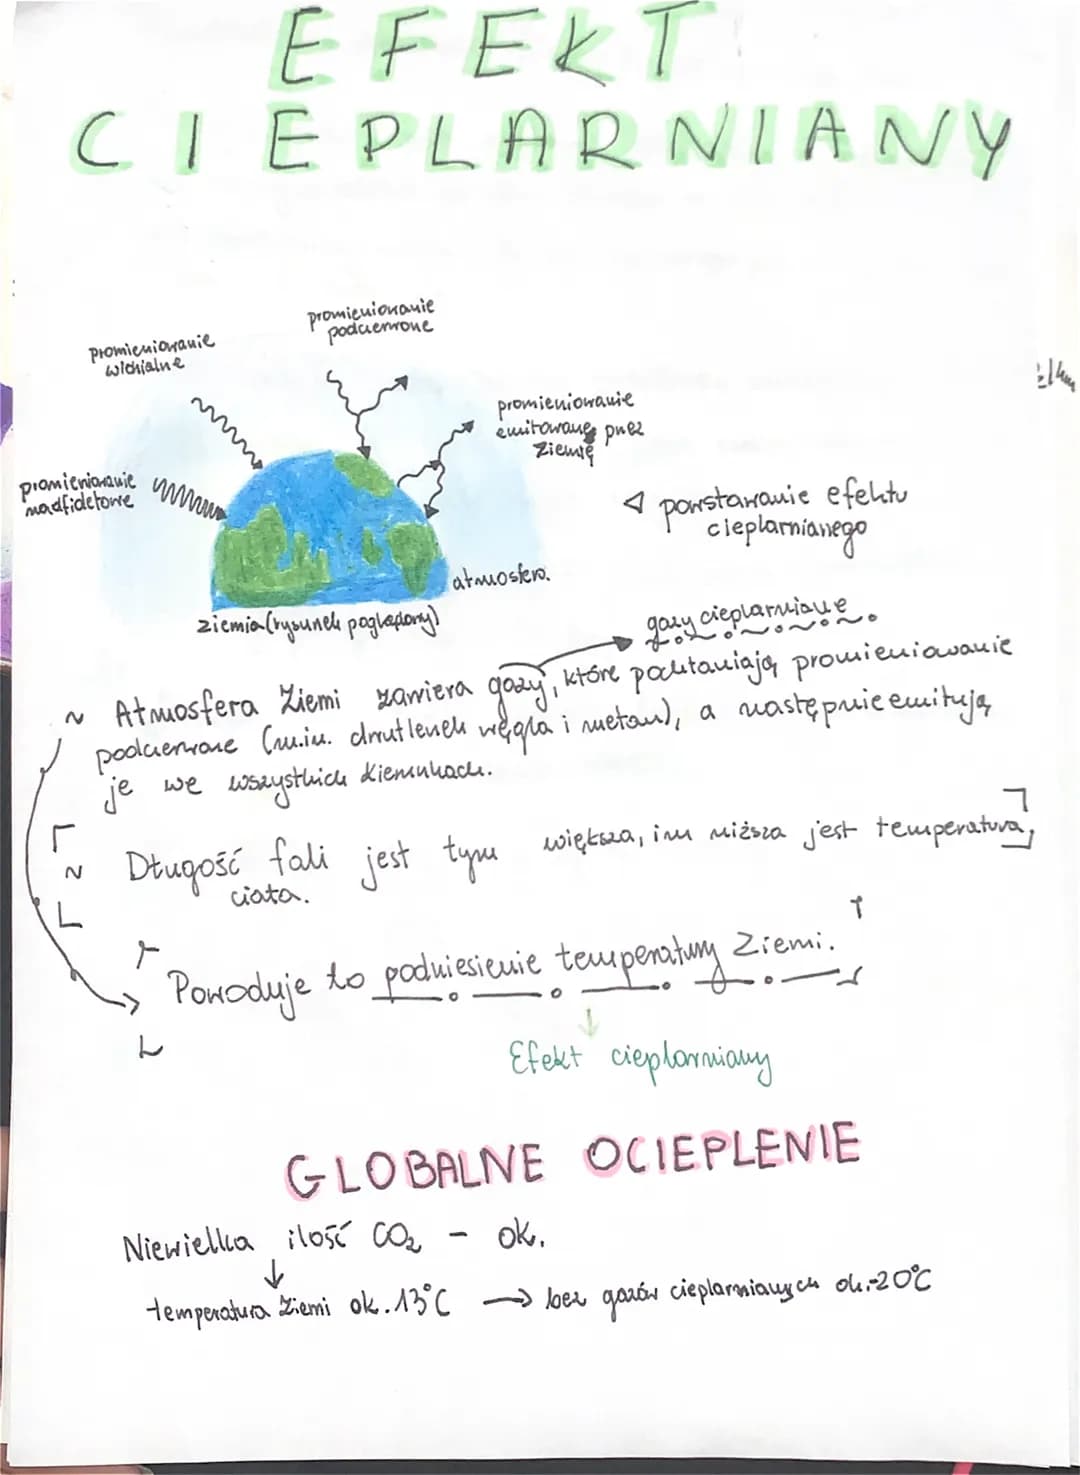 EFEKT
CIEPLARNIANY
promieniowanie
podczerwone
promieniowanie
widzialne
promieniowanie
emitowane przez
Ziemię
promieniowanie
nadfioletowe
◁ powstawanie efektu
cieplarnianego
atmosfera
ziemia (rysunek poglądowy)
gazy cieplarniane
~ Atmosfera Ziemi zawiera gazy, które pochłaniają promieniowanie
podczerwone (m.in. dwutlenek węgla i metan), a następnie emitują
je we wszystkich kierunkach.
~ Długość fali jest tym większa, im niższa jest temperatura
ciała.
Powoduje to podniesienie temperatury Ziemi.
↓
Efekt cieplarniany
GLOBALNE OCIEPLENIE
Niewielka ilość CO₂ - ok.
↓
temperatura Ziemi ok. 13°C → bez gazów cieplarnianych ok.-20°C